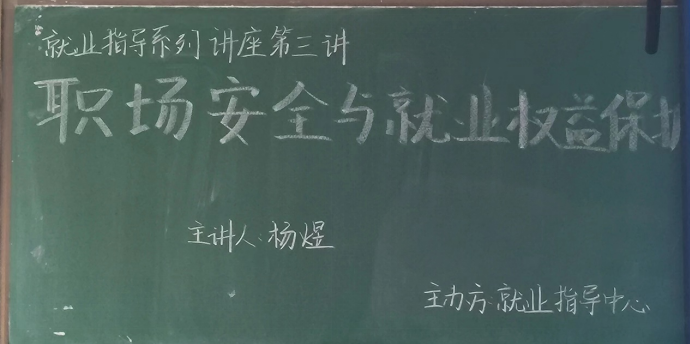 就业指导系列讲座第三讲
职场安全与就业权益保护
主讲人:杨煜
主办方:就业指导中心